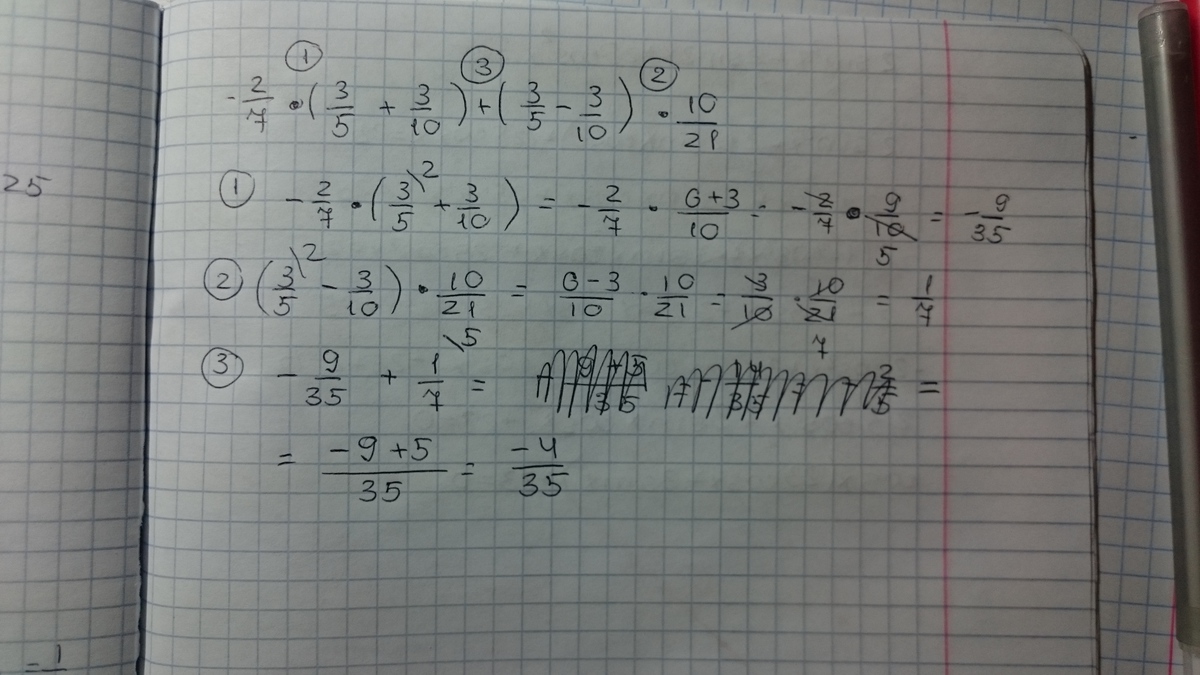 ① ③ ②
-2/7 • (3/5 + 3/10) + (3/5 - 3/10) • 10/21
25
① -2/7 • (3/5\2 + 3/10) = -2/7 • 6+3/10 = -2/7 • 9/10 5 = -9/35
② (3/5\2 - 3/10) • 10/21 = 6-3/10 • 10/21 = 3/10 • 10/21 7 = 1/7
③ -9/35 + 1/7\5 = =
= -9+5/35 = -4/35
-1